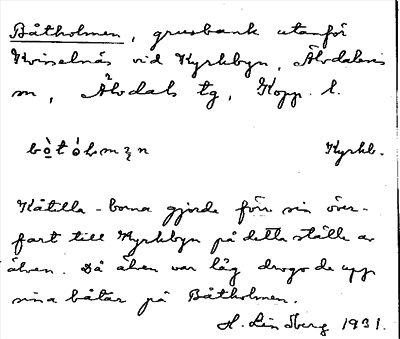 Båtholmen, grusbank utanför
Kviselnäs vid Kyrkbyn, Älvdalens
sn, Älvdals tg, Kopp. l.
Kyrkb.
Kåtilla-borna gjorde förr sin över-
fart till Kyrkbyn på detta ställe av
älven. Då älven var låg drogo de upp
sina båtar på Båtholmen.
H. Lindberg 1931.